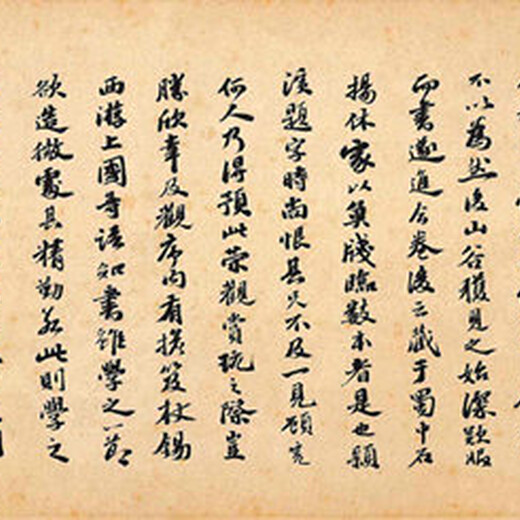 不以為然後山谷獲見之始深歎服
而書遂進今卷後云藏于蜀中石
揚休家以魚牋臨數本者是也穎
濱題字時尚恨其兄不及一見顧
何人乃得預此榮觀賞玩之際豈
勝欣幸及觀序內有擔笈杖錫
西游上國等語知書雖學之一節
欲造微處其精勤若此則學之